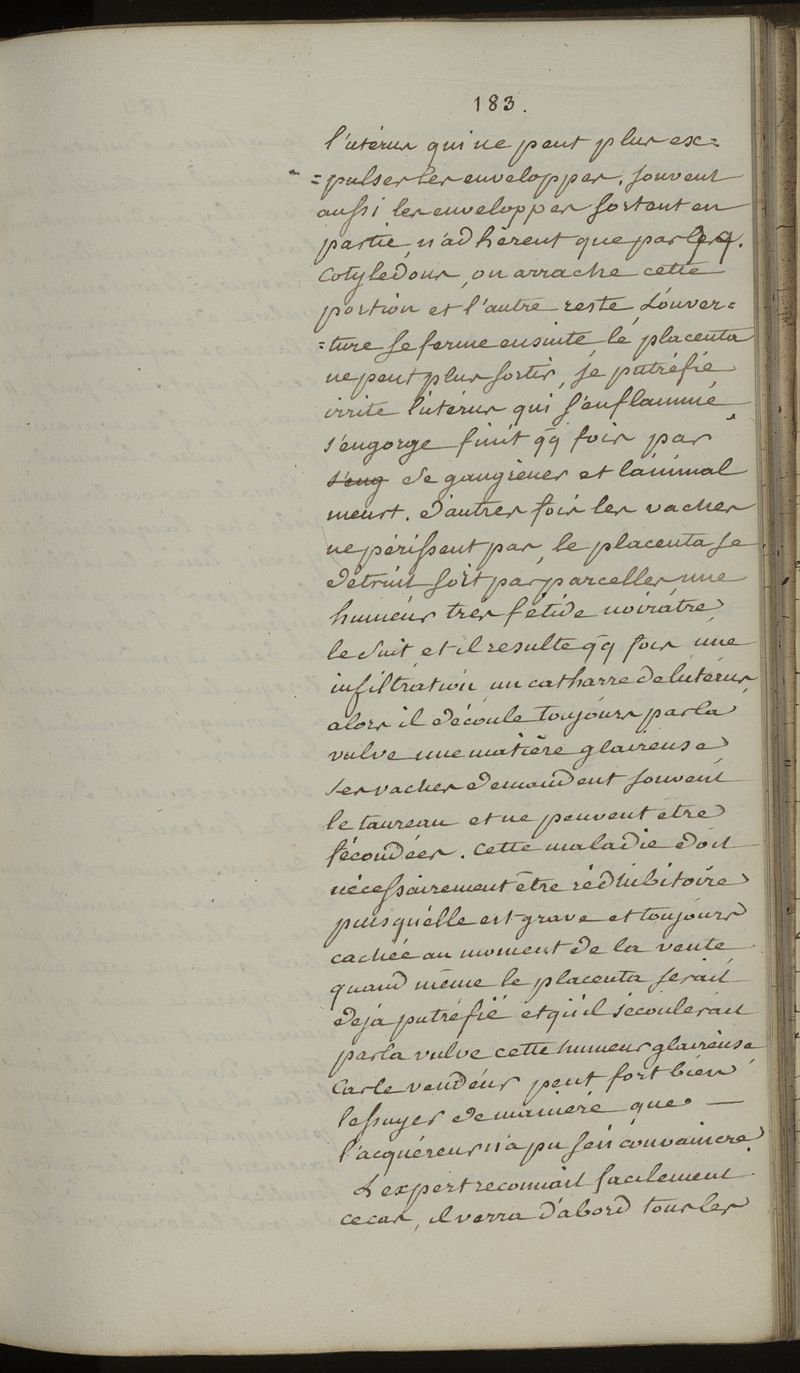 183.
l'utérus qui ne peut plus ex=
=pulser les enveloppes. souvent
aussi les enveloppes sortent en
partie, n'adhèrent que par les qq.
Cotylédons, on arrache cette
portion et l'autre reste L'ouver=
=ture se ferme ensuite le placenta
ne peut plus sortir, se putréfie
irrite l'utérus qui s'enflamme
s'engorge finit qq fois par
s'eng de gangréner et l'animal
meurt. d'autres fois les vaches
ne périssent pas, le placenta se
détruit sort par parcelles une
humeur très fétide noirâtre
le suit et il resulte qq fois une
infiltration un catharre de l'utérus
alors il découle toujours par la
vulve une matière glaireuse
Les vaches demandent souvent
le taureau et ne peuvent être
fécondées. Cette maladie doit
nécessairement être rédhibitoire
puisqu'elle est grave et toujours
cachée au moment de la vente
quand même le placenta serait
déjà putréfié et qu'il s'écoulerait
par la vulve cette humeur glaireuse
Car le vendeur peut fort bien
l'essuyer de manière que —
l'acquéreur n'a pu s'en convaincre
L'expert reconnait facilement
ce cas, il verra d'abord tous les